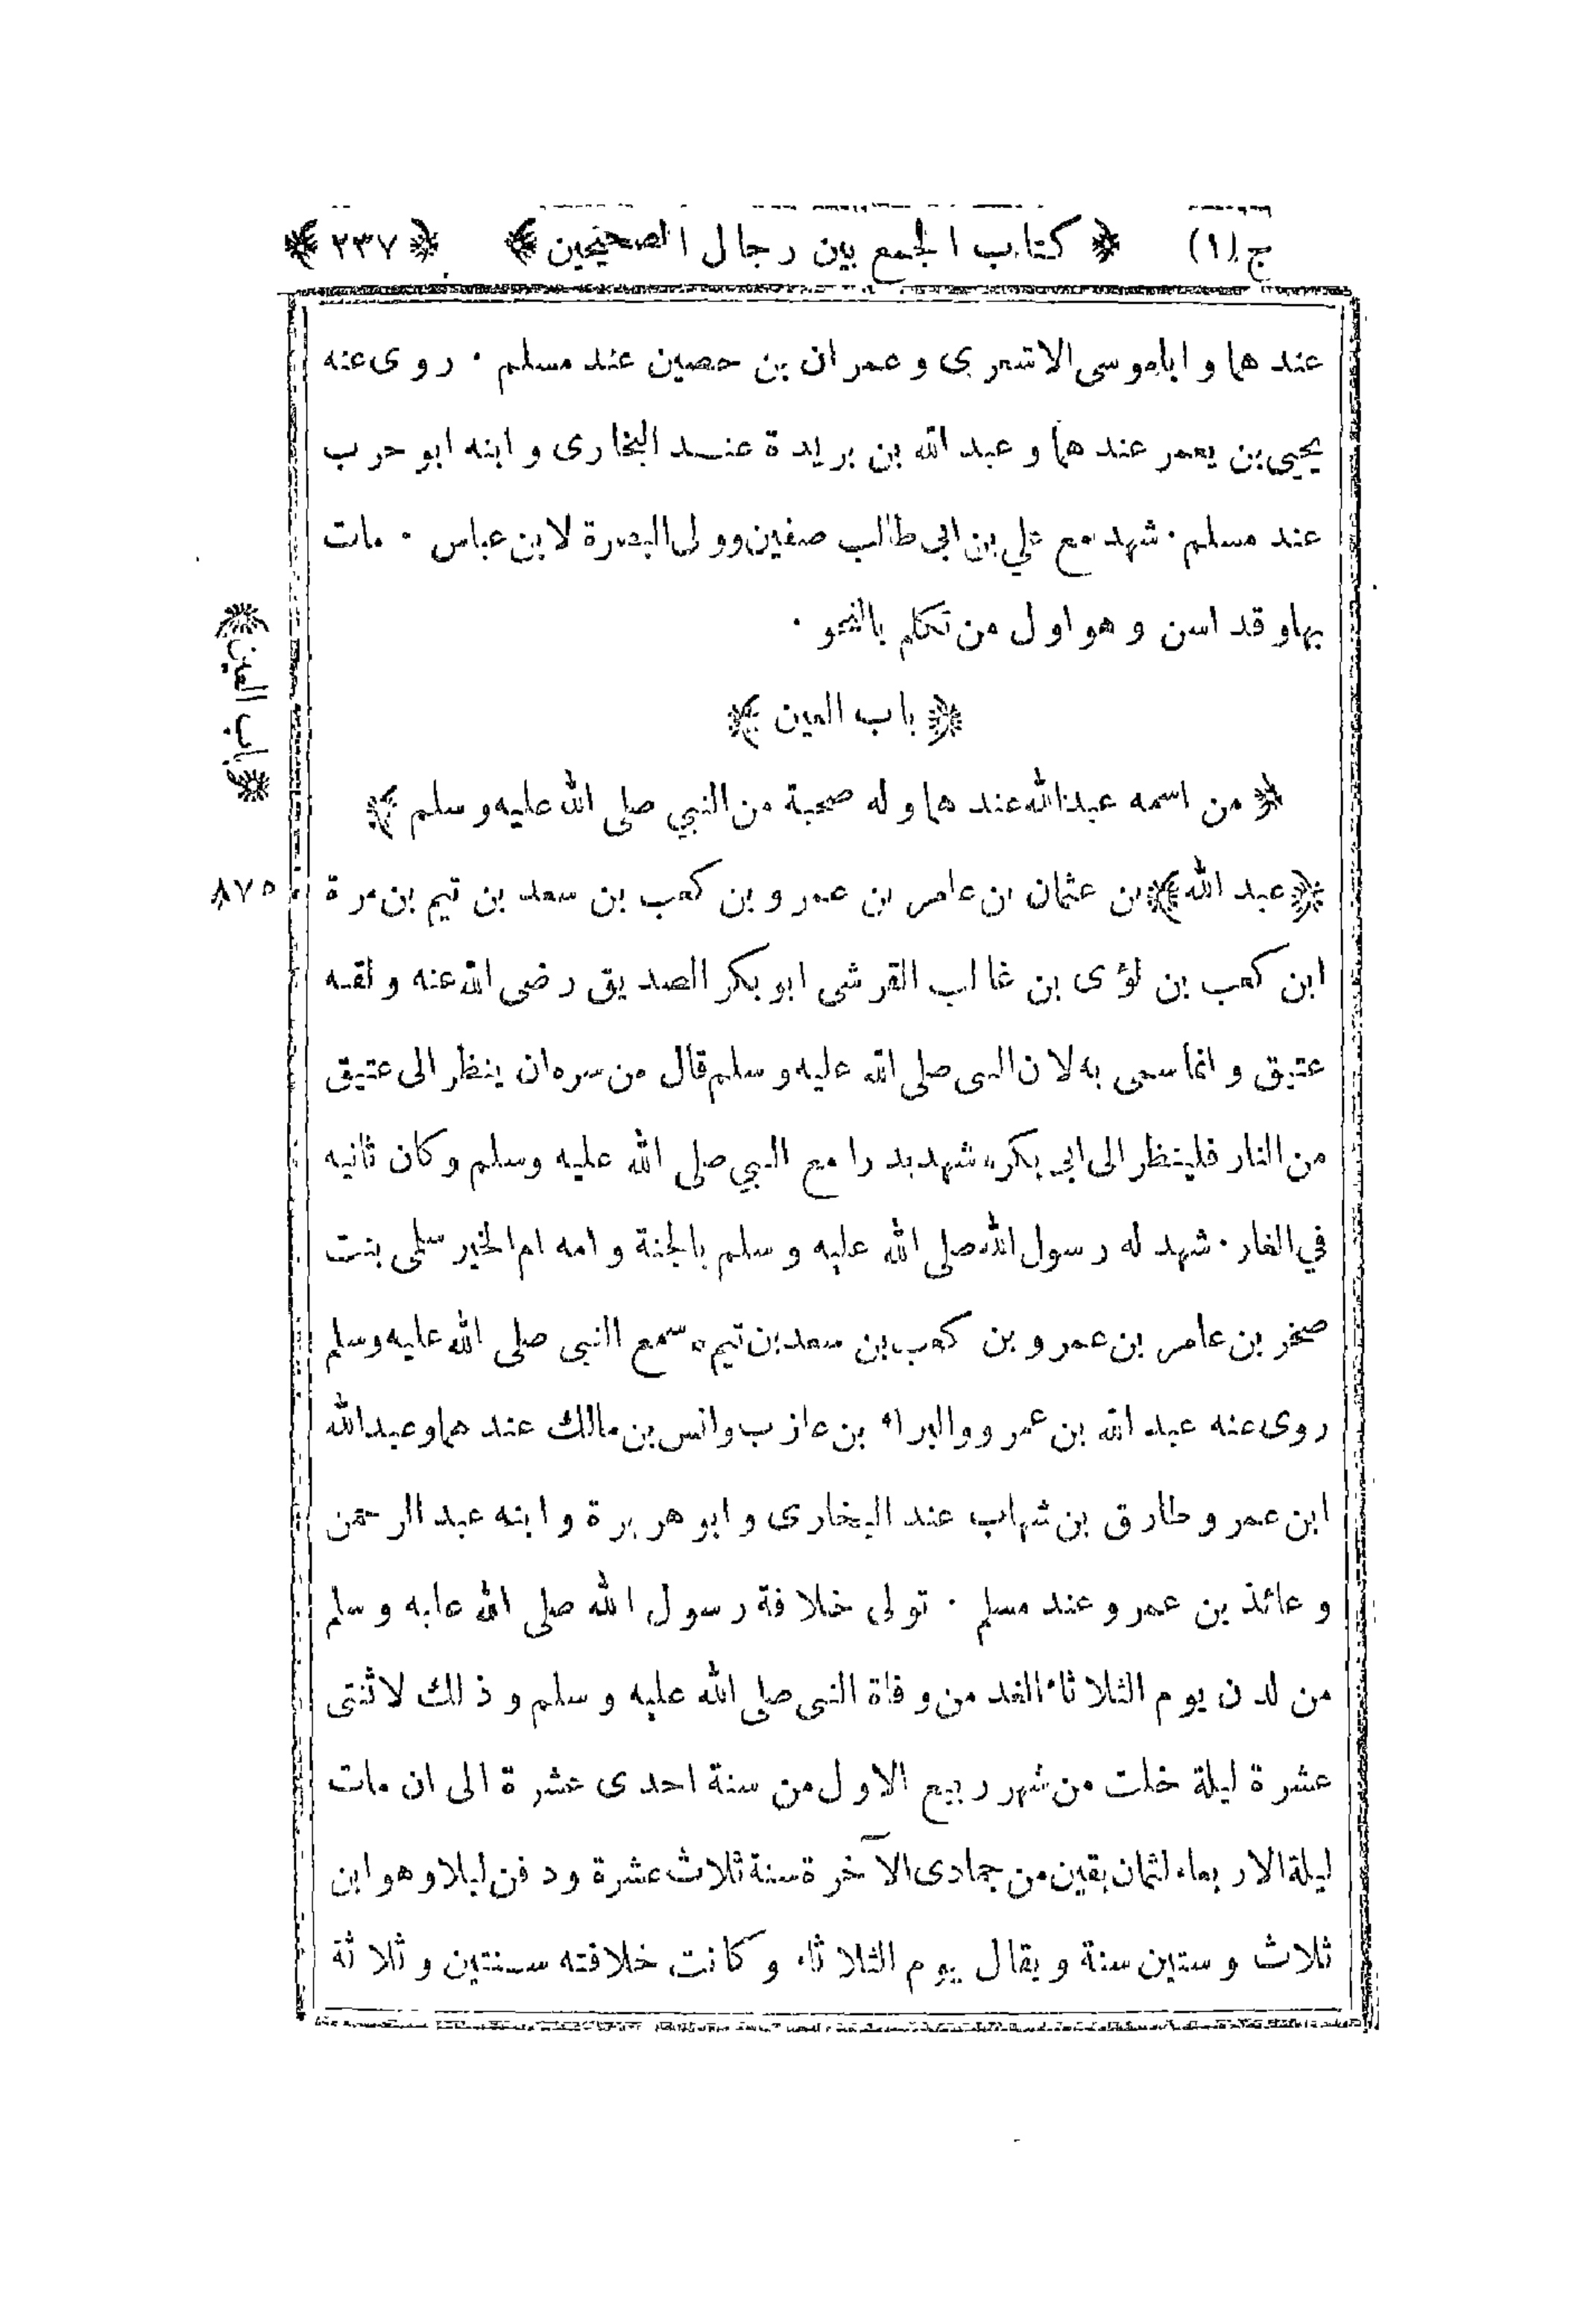 ج (١) ﴿ كتاب الجمع بين رجال الصحيحين ﴾ ﴿ ٢٣٧ ﴾
عندهما و اباموسى الاشعرى و عمران بن حصين عند مسلم ٠ روى عنه
يحيى بن يعمر عندهما و عبد الله بن بريدة عند البخارى و ابنه ابو حرب
عند مسلم ٠ شهد مع علي بن ابى طالب صفين وولى البصرة لابن عباس ٠ مات
بها وقد اسن و هو اول من تكلم بالنحو ٠
﴿ باب العين ﴾
﴿ باب العين ﴾
﴿ من اسمه عبدالله عندهما و له صحبة من النبي صلى الله عليه و سلم ﴾
﴿عبد الله﴾ بن عثمان بن عامر بن عمرو بن كعب بن سعد بن تيم بن مرة ٨٧٥
ابن كعب بن لؤى بن غالب القرشى ابو بكر الصديق رضى الله عنه و لقبه
عتيق و انما سمى به لان النبى صلى الله عليه و سلم قال من سره ان ينظر الى عتيق
من النار فلينظر الى ابى بكر٠ شهد بدرا مع النبي صلى الله عليه وسلم وكان ثانيه
في الغار ٠ شهد له رسول الله صلى الله عليه و سلم بالجنة و امه ام الخير سلمى بنت
صخر بن عامر بن عمرو بن كعب بن سعد بن تيم ٠ سمع النبى صلى الله عليه وسلم
روى عنه عبد الله بن عمرو والبراء بن عازب وانس بن مالك عندهما وعبدالله
ابن عمر و طارق بن شهاب عند البخارى و ابو هريرة و ابنه عبد الرحمن
و عائذ بن عمرو عند مسلم ٠ تولى خلافة رسول الله صلى الله عليه و سلم
من لدن يوم الثلاثاء الغد من وفاة النبى صلى الله عليه و سلم و ذلك لاثنتى
عشرة ليلة خلت من شهر ربيع الاول من سنة احدى عشرة الى ان مات
ليلة الاربعاء لثمان بقين من جمادى الآخرة سنة ثلاث عشرة ودفن ليلا وهو ابن
ثلاث و ستين سنة و يقال يوم الثلاثاء و كانت خلافته سنتين و ثلاثة